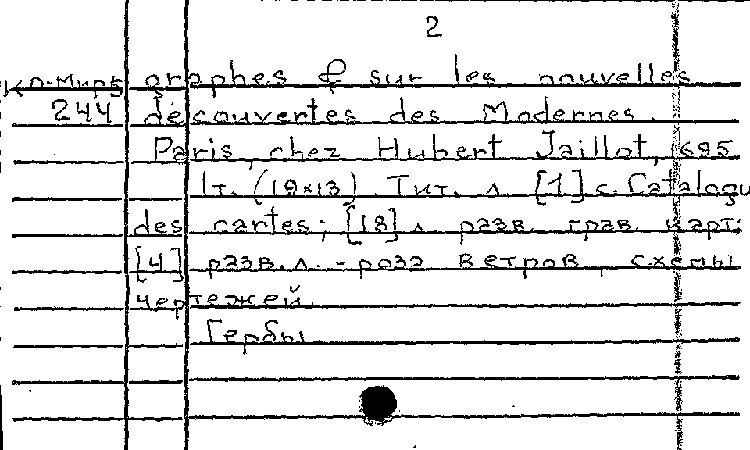 2
graphes & sur les nouvelles
244 découvertes des Modernes.
Paris, chez Hubert Jaillot, 1695
1т. (19×13) Тит. л. [1] с. Catalogu
des cartes; [18] л. разв. грав. карт;
[4] разв. л. - роза ветров, схемы
чертежей.
Гербы